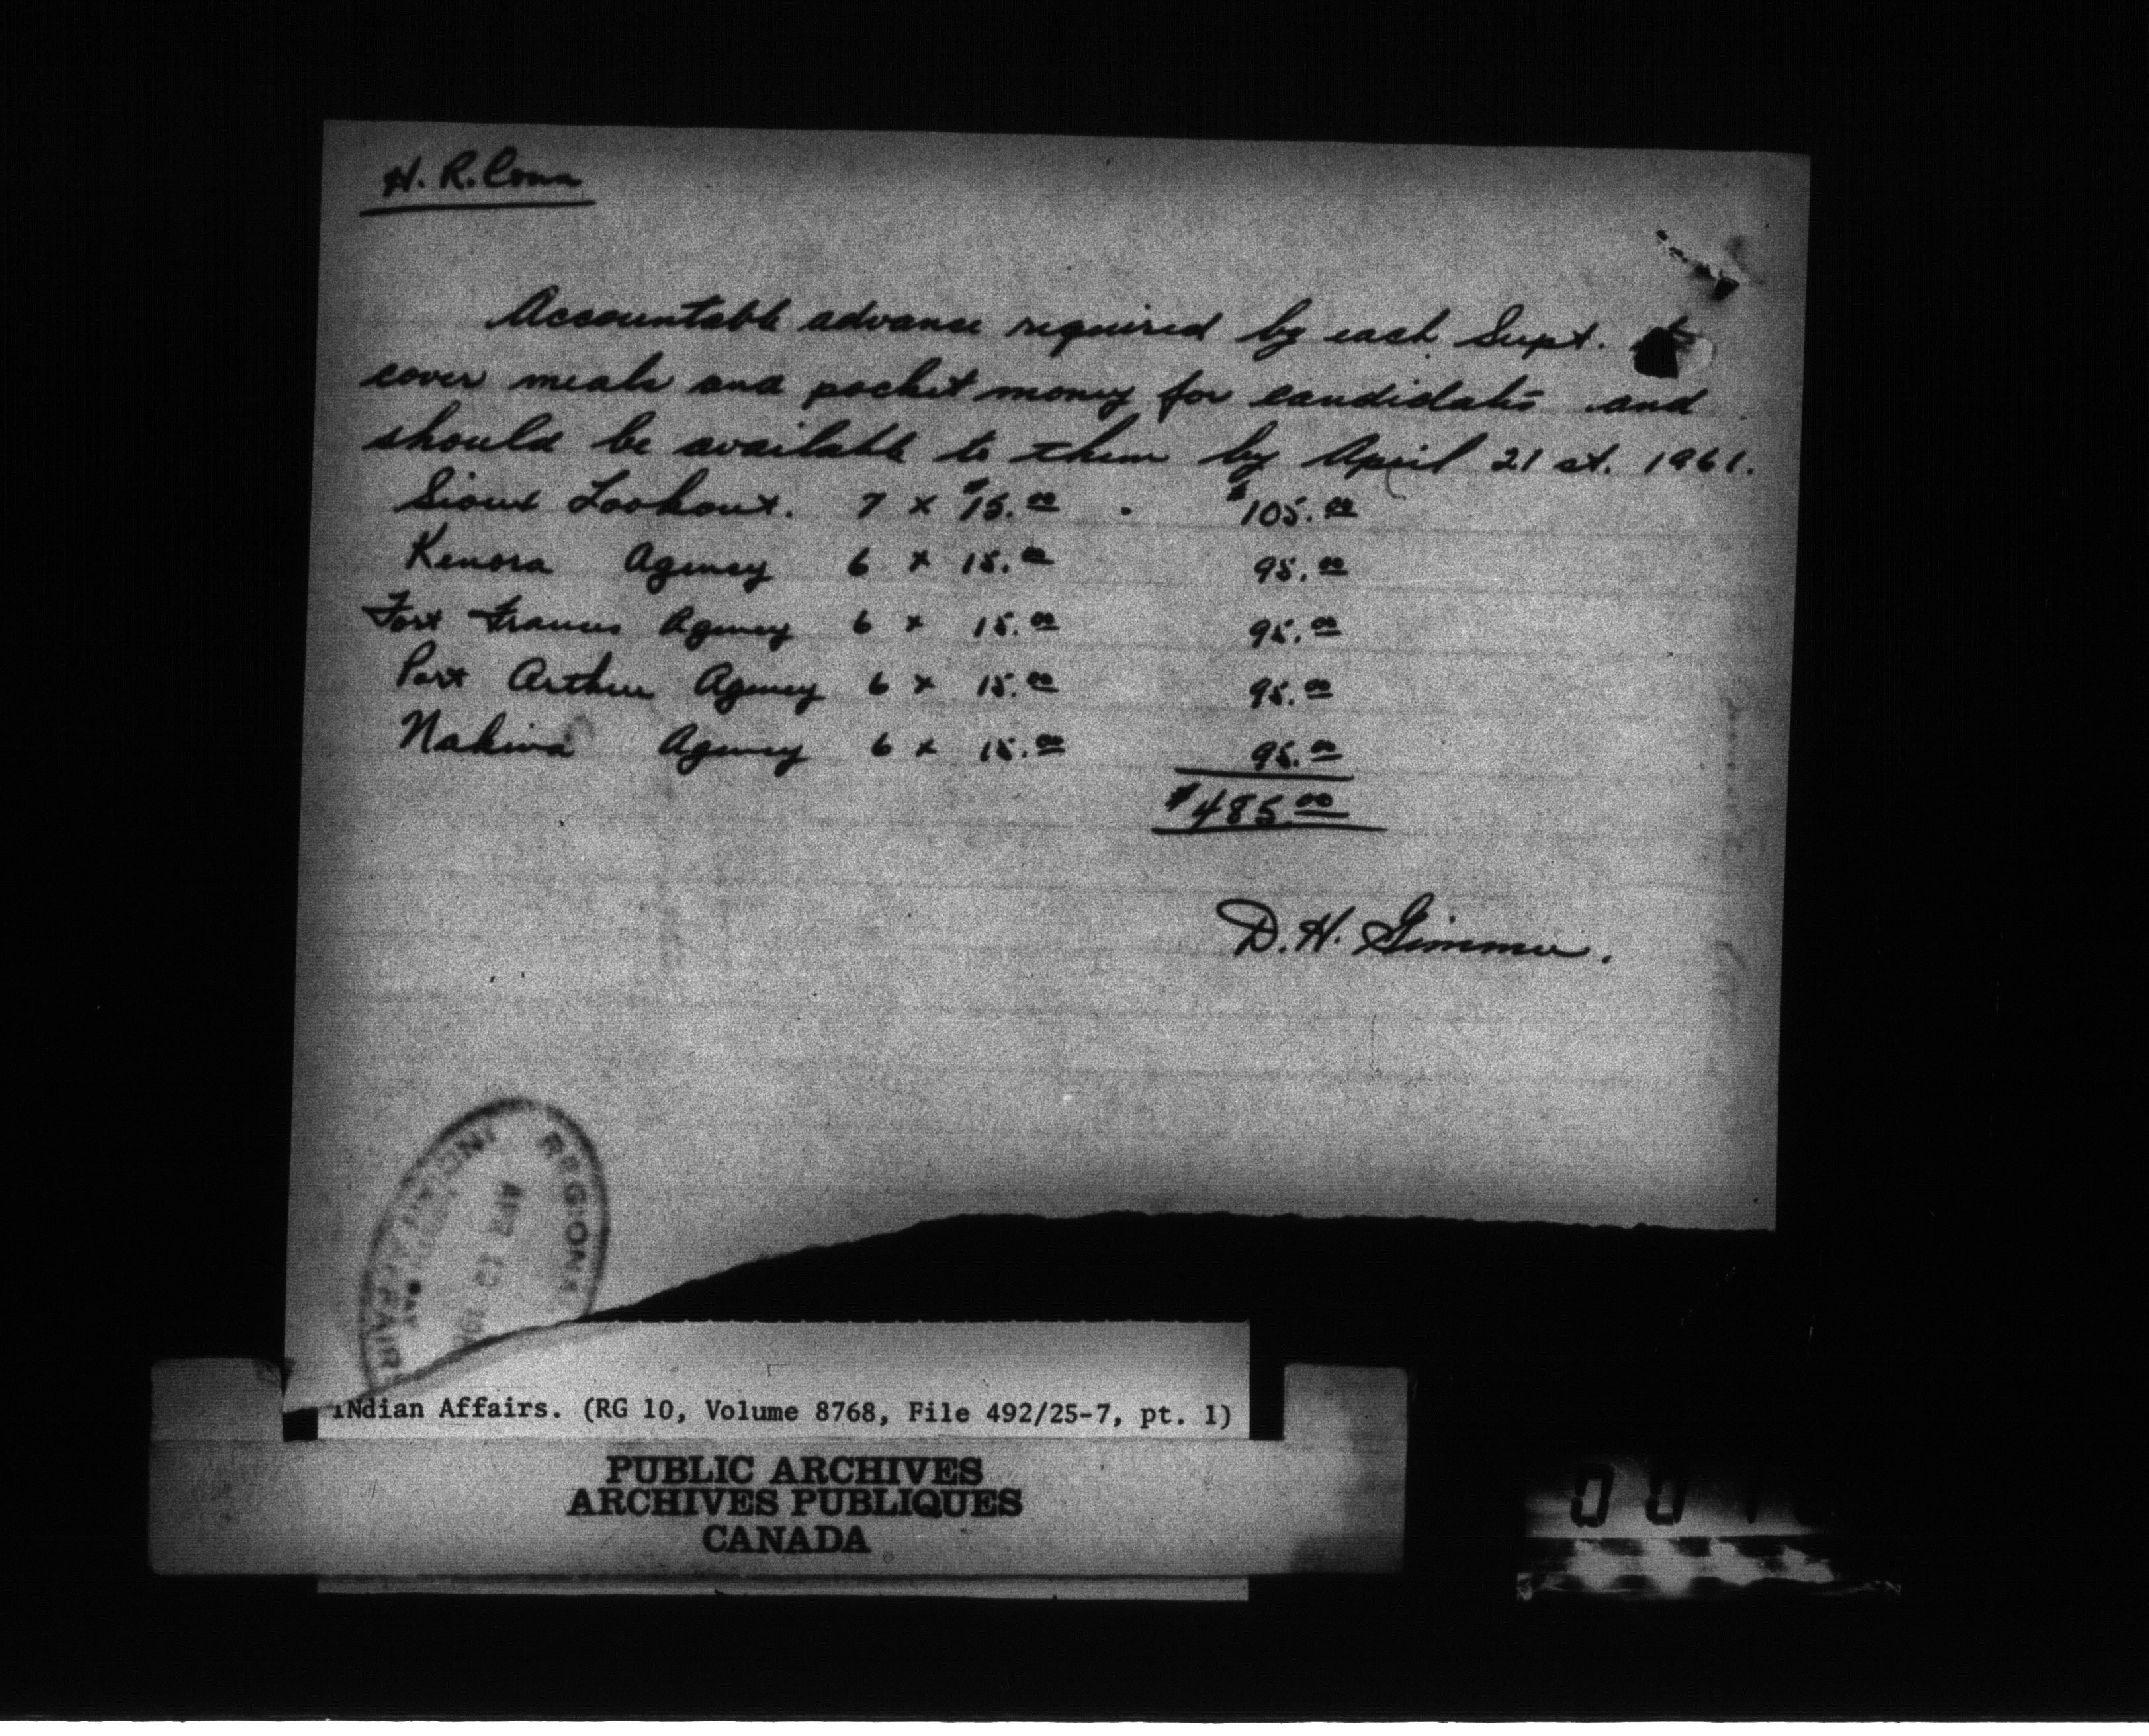 H. R. Conn
Accountable advance required by each Supt. to
cover meals and pocket money for candidates and
should be available to them by April 21 st. 1961.
Sioux Lookout. 7 x $15.00 . $105.00
Kenora Agency 6 x 15.00 95.00
Fort Frances Agency 6 x 15.00 95.00
Port Arthur Agency 6 x 15.00 95.00
Nakina Agency 6 x 15.00 95.00
$485.00
D. H.
REGIONA
APR 12
INDIAN AFFAIR
INdian Affairs. (RG 10, Volume 8768, File 492/25-7, pt. 1)
PUBLIC ARCHIVES
ARCHIVES PUBLIQUES
CANADA
0 0